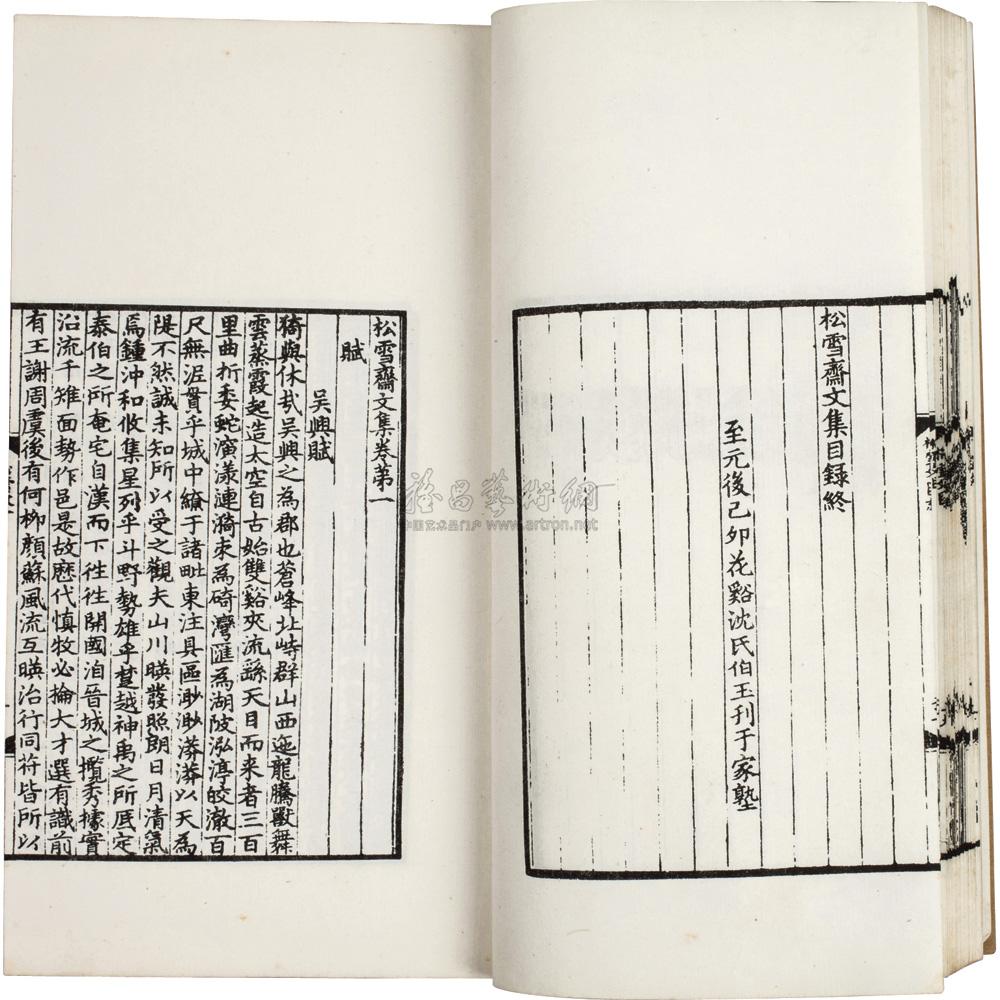 松雪齋文集目録終
至元後己夘花谿沈氏伯玉刊于家塾
松雪齋文集卷第一
賦
吳興賦
猗與休哉吳興之為郡也蒼峰北峙群山西迤龍騰獸舞
雲蒸霞起造太空自古始雙谿夾流繇天目而来者三百
里曲折委蛇演漾連漪束為碕灣匯為湖陂泓渟皎澈百
尺無涯貫乎城中繚于諸毗東注具區渺渺漭漭以天為
隄不然誠未知所以受之觀夫山川暎發照朗日月清氣
焉鍾沖和攸集星列乎斗野勢雄乎楚越神禹之所底定
泰伯之所奄宅自漢而下往往開國洎晉城之攬秀據實
沿流千雉面勢作邑是故歷代慎牧必掄大才選有識前
有王謝周虞後有何柳顏蘇風流互暎治行同符皆所以
雅昌藝術網
中国艺术品门户 www.artron.net